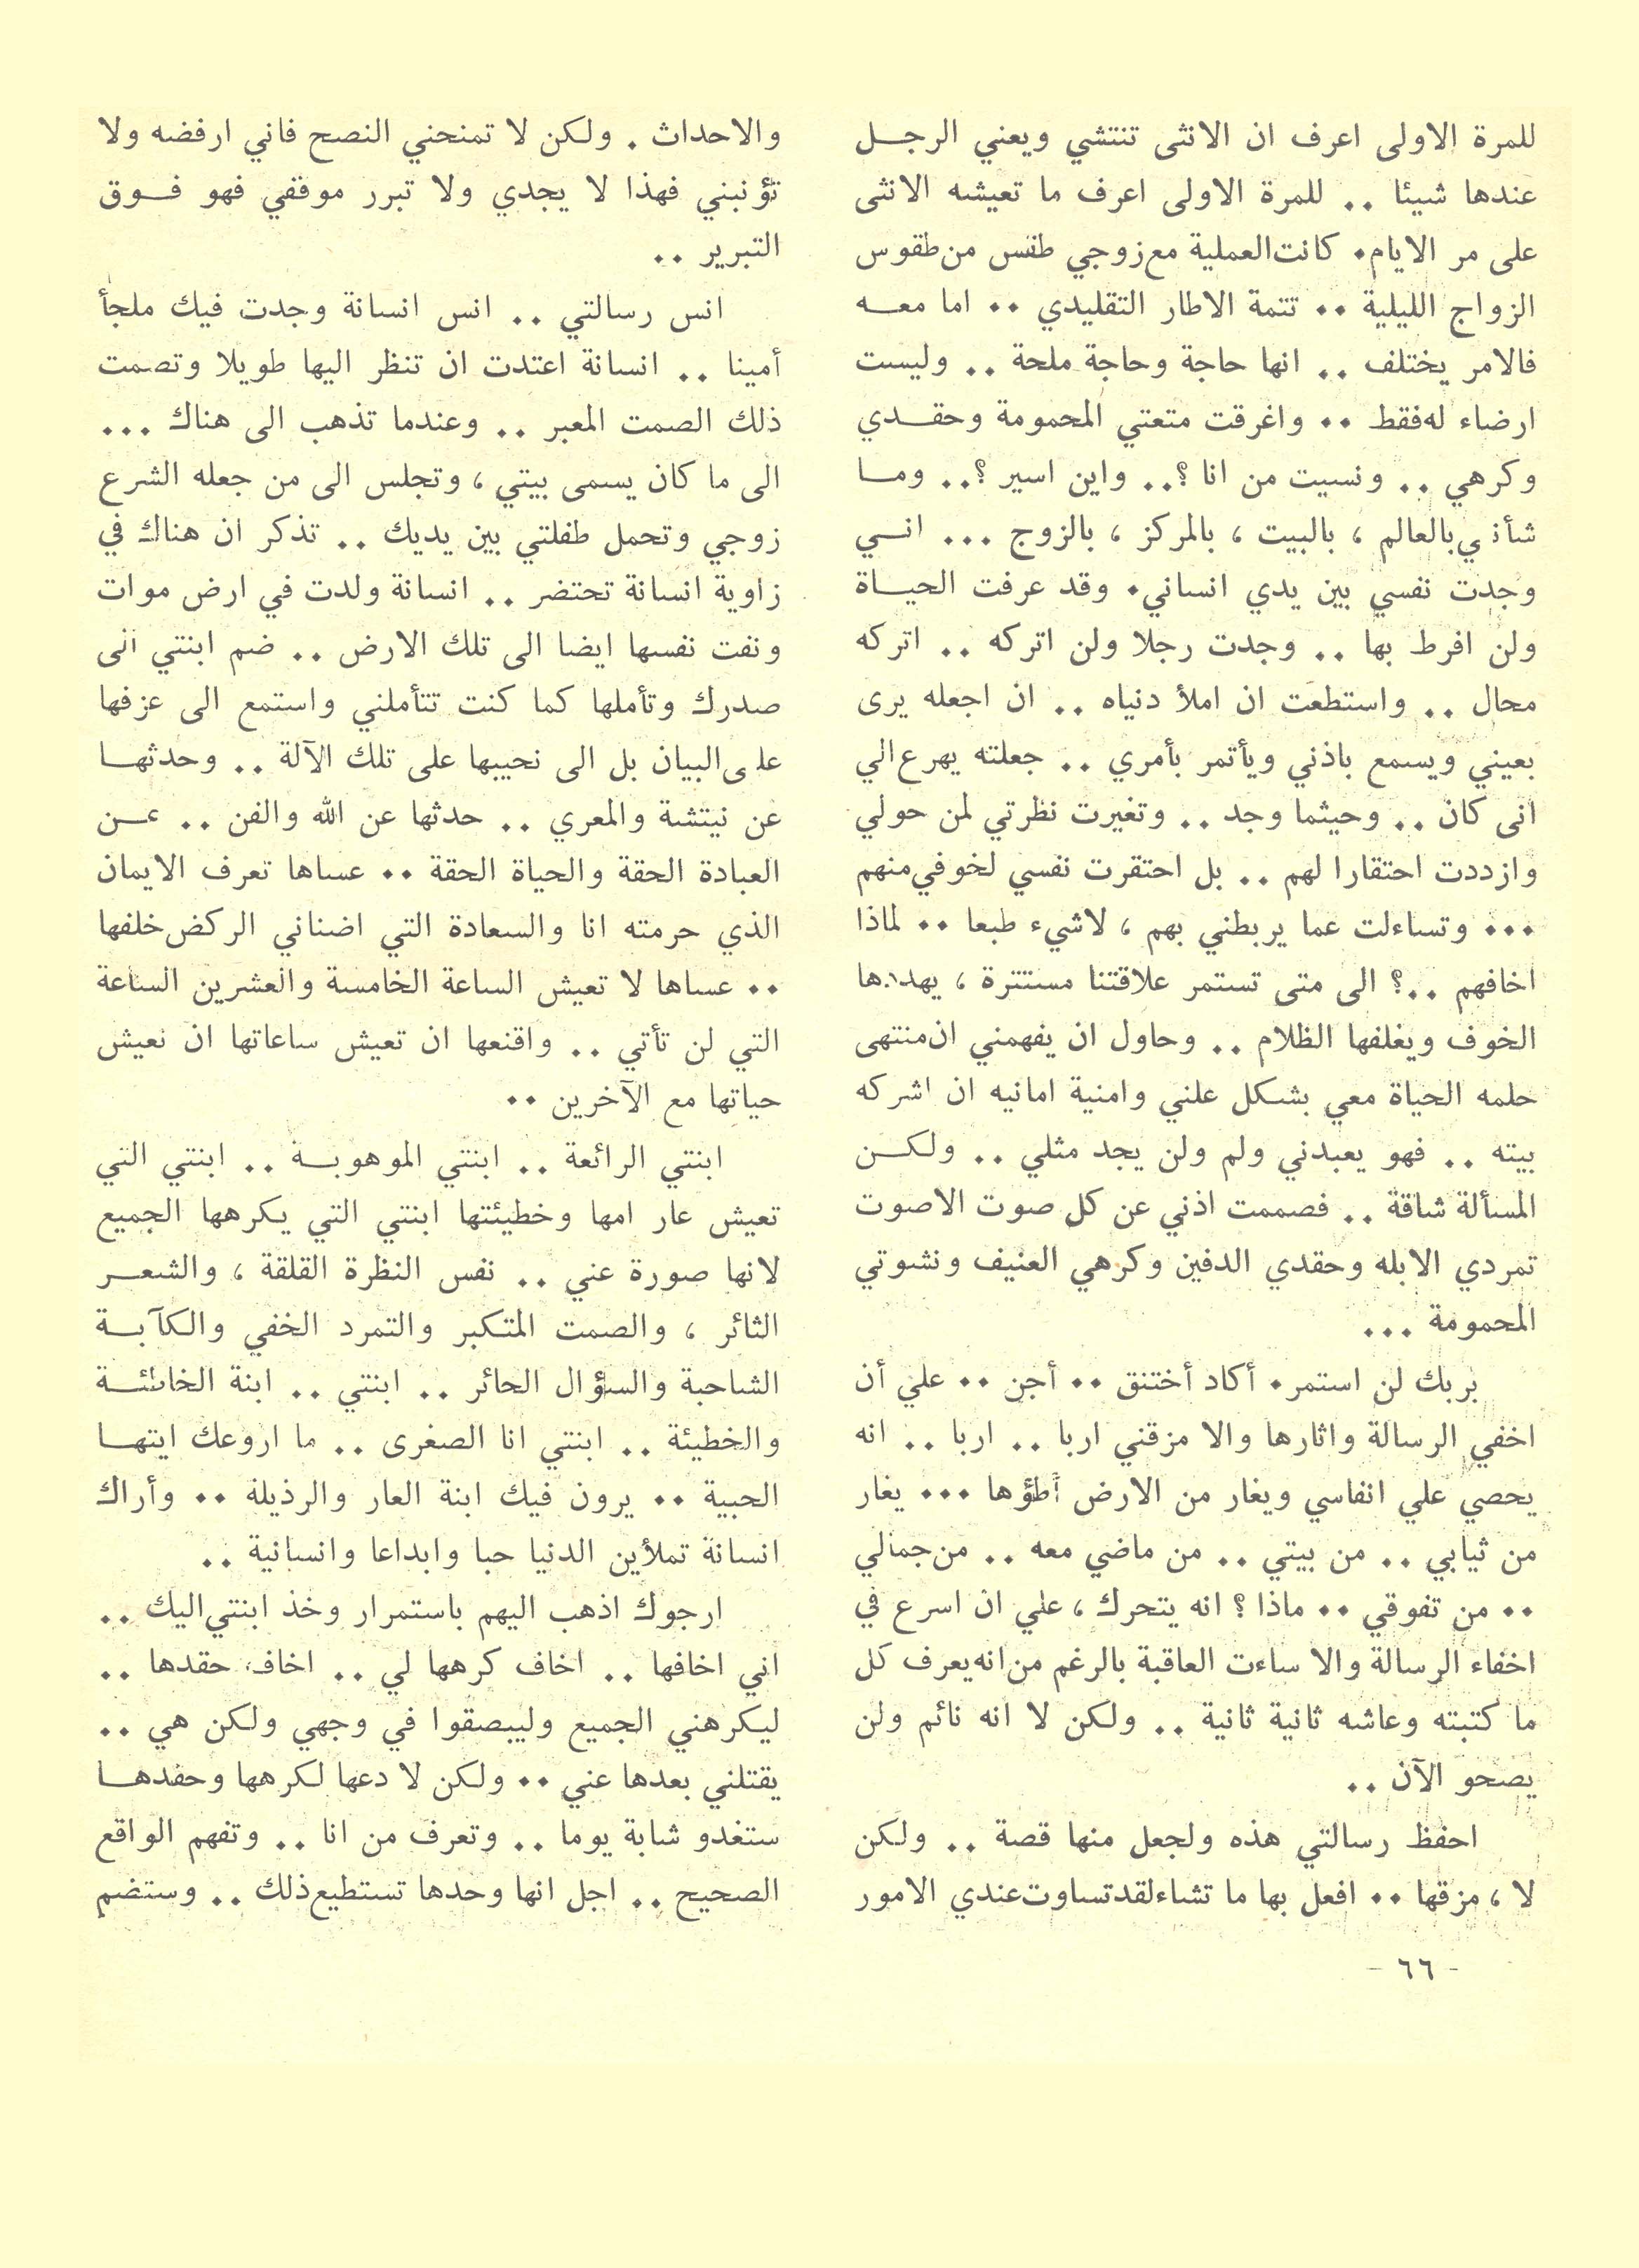 للمرة الاولى اعرف ان الانثى تنتشي ويعني الرجـل
عندها شيئا .. للمرة الاولى اعرف ما تعيشه الانثى
على مر الايام. كانت العملية مع زوجي طقس من طقوس
الزواج الليلية .. تتمة الاطار التقليدي .. اما معـه
فالامر يختلف .. انها حاجة وحاجة ملحة .. وليست
ارضاء له فقط .. واغرقت متعتي المحمومة وحقـدي
وكرهي .. ونسيت من انا ؟.. واين اسير ؟.. ومـا
شأني بالعالم ، بالبيت ، بالمركز ، بالزوج ... انـي
وجدت نفسي بين يدي انساني. وقد عرفت الحيـاة
ولن افرط بها .. وجدت رجلا ولن اتركه .. اتركه
محال .. واستطعت ان املأ دنياه .. ان اجعله يرى
بعيني ويسمع باذني ويأتمر بأمري .. جعلته يهرع الي
انى كان .. وحيثما وجد .. وتغيرت نظرتي لمن حولي
وازددت احتقارا لهم .. بل احتقرت نفسي لخوفي منهم
... وتساءلت عما يربطني بهم ، لاشيء طبعا .. لماذا
اخافهم ..؟ الى متى تستمر علاقتنا مستترة ، يهددها
الخوف ويغلفها الظلام .. وحاول ان يفهمني ان منتهى
حلمه الحياة معي بشكل علني وامنية امانيه ان اشركه
بيته .. فهو يعبدني ولم ولن يجد مثلي .. ولكـن
المسألة شاقة .. فصممت اذني عن كل صوت الاصوت
تمردي الابله وحقدي الدفين وكرهي العنيف ونشوتي
المحمومة ...
بربك لن استمر. أكاد أختنق .. أجن .. علي أن
اخفي الرسالة واثارها والا مزقني اربا .. اربا .. انه
يحصي علي انفاسي ويغار من الارض أطؤها ... يغار
من ثيابي .. من بيتي .. من ماضي معه .. من جمالي
.. من تفوقي .. ماذا ؟ انه يتحرك ، علي ان اسرع في
اخفاء الرسالة والا ساءت العاقبة بالرغم من انه يعرف كل
ما كتبته وعاشه ثانية ثانية .. ولكن لا انه نائم ولن
يصحو الآن ..
احفظ رسالتي هذه ولجعل منها قصة .. ولكن
لا ، مزقها .. افعل بها ما تشاء لقد تساوت عندي الامور
- ٦٦ -
والاحداث . ولكن لا تمنحني النصح فاني ارفضه ولا
تؤنبني فهذا لا يجدي ولا تبرر موقفي فهو فـوق
التبرير ..
انس رسالتي .. انس انسانة وجدت فيك ملجأ
أمينا .. انسانة اعتدت ان تنظر اليها طويلا وتصمت
ذلك الصمت المعبر .. وعندما تذهب الى هناك ...
الى ما كان يسمى بيتي ، وتجلس الى من جعله الشرع
زوجي وتحمل طفلتي بين يديك .. تذكر ان هناك في
زاوية انسانة تحتضر .. انسانة ولدت في ارض موات
ونفت نفسها ايضا الى تلك الارض .. ضم ابنتي الى
صدرك وتأملها كما كنت تتأملني واستمع الى عزفها
على البيان بل الى نحيبها على تلك الآلة .. وحدثهـا
عن نيتشة والمعري .. حدثها عن الله والفن .. عـن
العبادة الحقة والحياة الحقة .. عساها تعرف الايمان
الذي حرمته انا والسعادة التي اضناني الركض خلفها
.. عساها لا تعيش الساعة الخامسة والعشرين الساعة
التي لن تأتي .. واقنعها ان تعيش ساعاتها ان تعيش
حياتها مع الآخرين ..
ابنتي الرائعة .. ابنتي الموهوبـة .. ابنتي التي
تعيش عار امها وخطيئتها ابنتي التي يكرهها الجميع
لانها صورة عني .. نفس النظرة القلقة ، والشعـر
الثائر ، والصمت المتكبر والتمرد الخفي والكآبـة
الشاحبة والسؤال الحائر .. ابنتي .. ابنة الخاطئـة
والخطيئة .. ابنتي انا الصغرى .. ما اروعك ايتهـا
الحبية .. يرون فيك ابنة العار والرذيلة .. وأراك
انسانة تملأين الدنيا حبا وابداعا وانسانية ..
ارجوك اذهب اليهم باستمرار وخذ ابنتي اليك ..
اني اخافها .. اخاف كرهها لي .. اخاف حقدها ..
ليكرهني الجميع وليبصقوا في وجهي ولكن هي ..
يقتلني بعدها عني .. ولكن لا دعها لكرهها وحقدهـا
ستغدو شابة يوما .. وتعرف من انا .. وتفهم الواقع
الصحيح .. اجل انها وحدها تستطيع ذلك .. وستضم